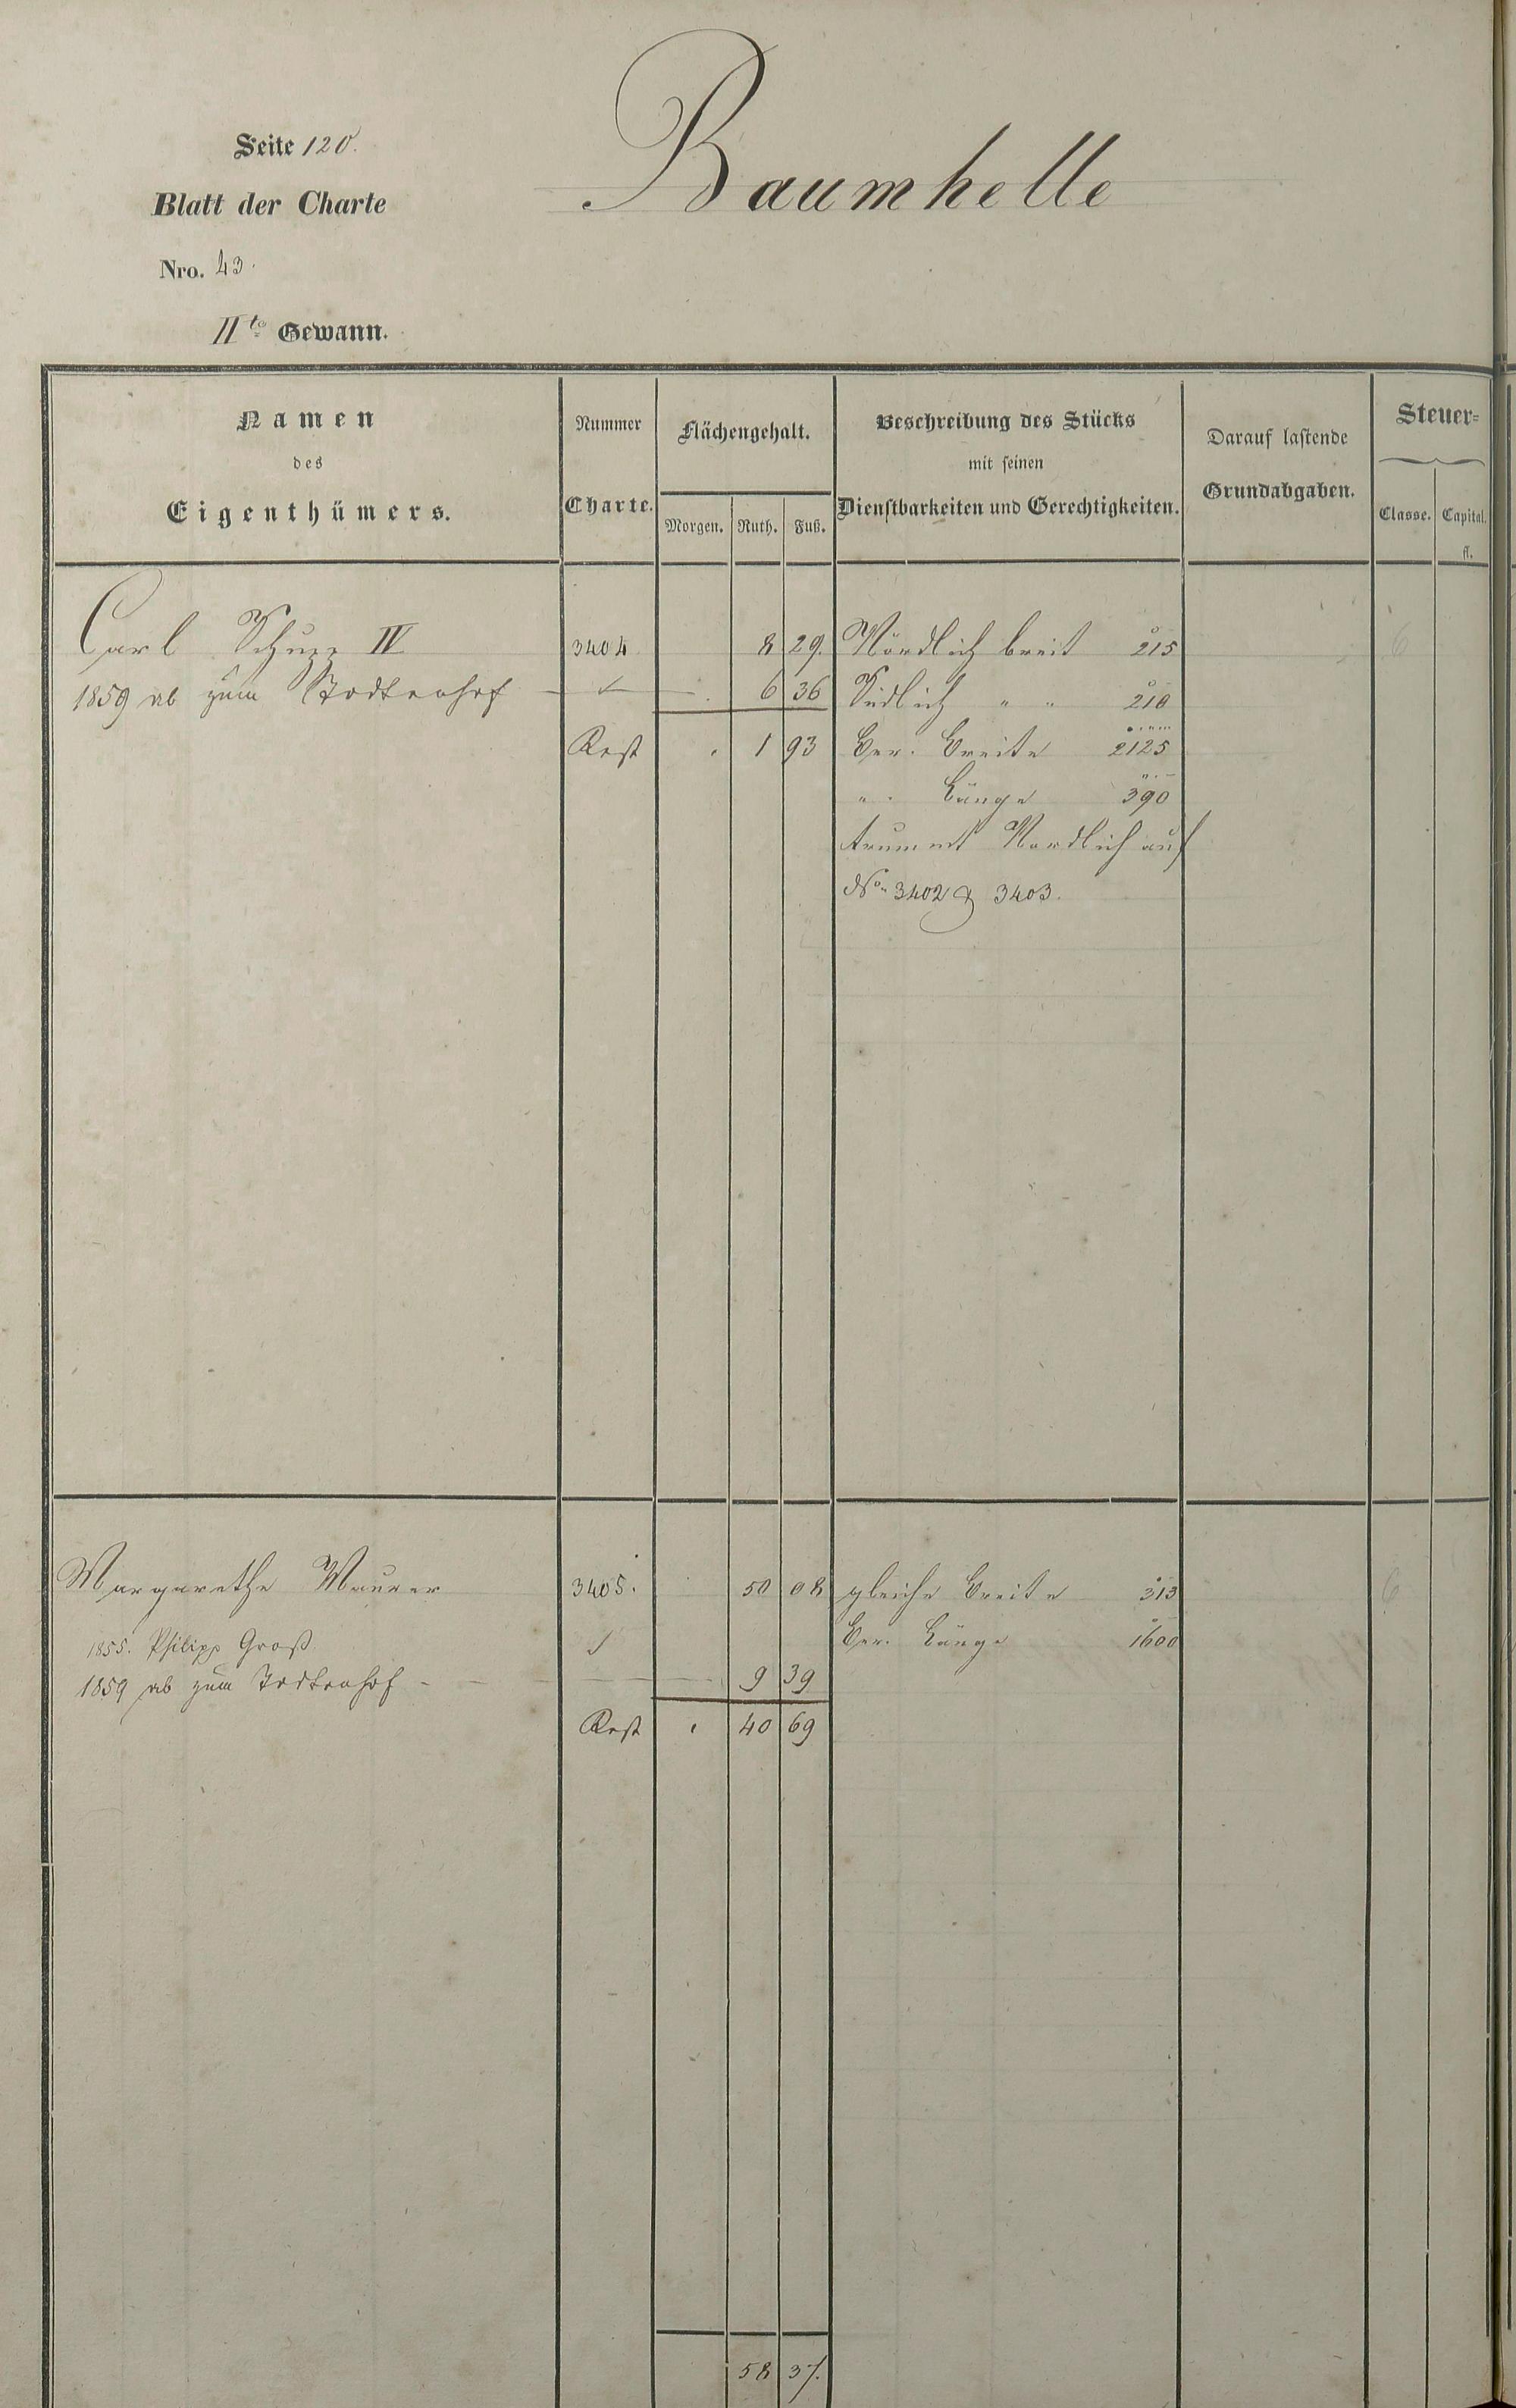 Baumhelle
Seite 120.
Blatt der Charte
Nro. 43.
IIte Gewann.
Namen des Eigenthümers.
Nummer Charte.
Flächengehalt.
Morgen. Ruth. Fuß.
Beschreibung des Stücks mit seinen Dienstbarkeiten und Gerechtigkeiten.
Darauf lastende Grundabgaben.
Steuer-
Classe. Capital. fl.
Carl Schupp IV 3404 8 29. Nördlich breit 215 6
1859 ab zum Todtenhof — 6 36 Südlich " " 210
Rest . 1 93 Ber. Breite 2125
" Länge 390
trummt Nordlich auf
No 3402 & 3403.
Margarethe Maurer 3405. 50 08 gleiche Breite 313 6
1855. Philipp Groß Ber. Länge 1600
1859 ab zum Todtenhof - — 9 39
Rest . 40 69
58 37.